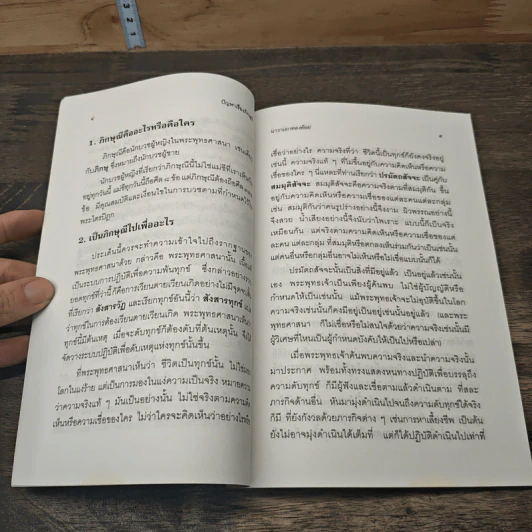 ๘
1. ภิกษุณีคืออะไรหรือคือใคร
ภิกษุณีคือนักบวชผู้หญิงในพระพุทธศาสนา เช่นเดียว
กับภิกษุ ซึ่งหมายถึงนักบวชผู้ชาย
นักบวชผู้หญิงที่เรียกว่าภิกษุณีนี้ไม่ใช่แม่ชีที่เรา
อยู่ทุกวันนี้ แม่ชีทุกวันนี้ถือศีล ๘ ข้อ แต่ภิกษุณีต้องถือศีล
ข้อ มีคุณสมบัติและเงื่อนไขในการบวชตามที่กำหนดไว้ใน
พระไตรปิฎก
2. เป็นภิกษุณีไปเพื่ออะไร
ประเด็นนี้ควรจะทำความเข้าใจไปถึงรากฐานของ
พระพุทธศาสนาด้วย กล่าวคือ พระพุทธศาสนานั้น
เป็นระบบการปฏิบัติเพื่อความพ้นทุกข์ ซึ่งกล่าวอย่าง
ยอดทุกข์ที่ว่านี้ก็คือการเวียนตายเวียนเกิดอย่างไม่มีจุดจบ
ที่เรียกว่า สังสารวัฏ และเรียกทุกข์อันนี้ว่า สังสารทุกข์
ว่าทุกข์ในการต้องเวียนตายเวียนเกิด พระพุทธศาสนา
ทุกข์นี้มีต้นเหตุ เมื่อจะดับทุกข์ก็ต้องดับที่ต้นเหตุนั้น จึง
จัดวางระบบปฏิบัติเพื่อดับเหตุแห่งทุกข์นั้นขึ้น
ที่พระพุทธศาสนาเห็นว่า ชีวิตเป็นทุกข์นั้น ไม่ใช่มอง
โลกในแง่ร้าย แต่เป็นการมองในแง่ความเป็นจริง หมายความ
ว่าความจริงแท้ ๆ มันเป็นอย่างนั้น ไม่ใช่จริงตามความคิด
เห็นหรือความเชื่อของใคร ไม่ว่าใครจะคิดเห็นว่าอย่างไรหรือ
๙
เชื่อว่าอย่างไร ความจริงที่ว่า ชีวิตนี้เป็นทุกข์ก็ยังคงจริงอยู่
เช่นนี้ ความจริงแท้ ๆ ที่ไม่ขึ้นอยู่กับความคิดเห็นหรือความ
เชื่อของใคร ๆ นี่แหละที่ท่านเรียกว่า ปรมัตถสัจจะ เป็นคู่กับ
สมมุติสัจจะ สมมุติสัจจะคือความจริงตามที่สมมุติกัน ขึ้น
อยู่กับความคิดเห็นหรือความเชื่อของแต่ละคนแต่ละกลุ่ม
เช่น สมมุติกันว่าคนรูปร่างอย่างนี้จึงงาม ผิวพรรณอย่างนี้
จึงสวย น้ำเสียงอย่างนี้จึงนับว่าไพเราะ แบบนี้ก็เป็นจริง
เหมือนกัน แต่จริงตามความคิดเห็นหรือความเชื่อของแต่
ละคน แต่ละกลุ่ม ที่สมมุติหรือตกลงเห็นร่วมกันว่าเป็นเช่นนั้น
แต่คนอื่นหรือกลุ่มอื่นอาจไม่เห็นหรือไม่เชื่อแบบนั้นก็ได้
ปรมัตถสัจจะนั้นเป็นสิ่งที่มีอยู่แล้ว เป็นอยู่แล้วเช่นนั้น
เอง พระพุทธเจ้าเป็นเพียงผู้ค้นพบ ไม่ใช่ผู้บัญญัติหรือ
กำหนดให้เป็นเช่นนั้น แม้พระพุทธเจ้าจะไม่อุบัติขึ้นในโลก
ความจริงเช่นนั้นก็คงมีอยู่เป็นอยู่เช่นนั้นอยู่แล้ว และพระ
พุทธศาสนา ก็ไม่เชื่อหรือไม่สนใจด้วยว่าความจริงเช่นนั้นมี
ผู้วิเศษที่ไหนเป็นผู้กำหนดบังคับให้เป็นไปหรือเปล่า
เมื่อพระพุทธเจ้าค้นพบความจริงและนำความจริงนั้น
มาประกาศ พร้อมทั้งทรงแสดงหนทางปฏิบัติเพื่อบรรลุถึง
ความดับทุกข์ ก็มีผู้ฟังและเชื่อตามแล้วดำเนินตาม ที่สละ
ภารกิจด้านอื่น หันมามุ่งดำเนินไปจนถึงความดับทุกข์ได้จริง
ก็มี ที่ยังกังวลด้วยภารกิจต่าง ๆ เช่นการหาเลี้ยงชีพ เป็นต้น
ยังไม่อาจมุ่งดำเนินได้เต็มที่ แต่ก็ได้ปฏิบัติดำเนินไปเท่าที่